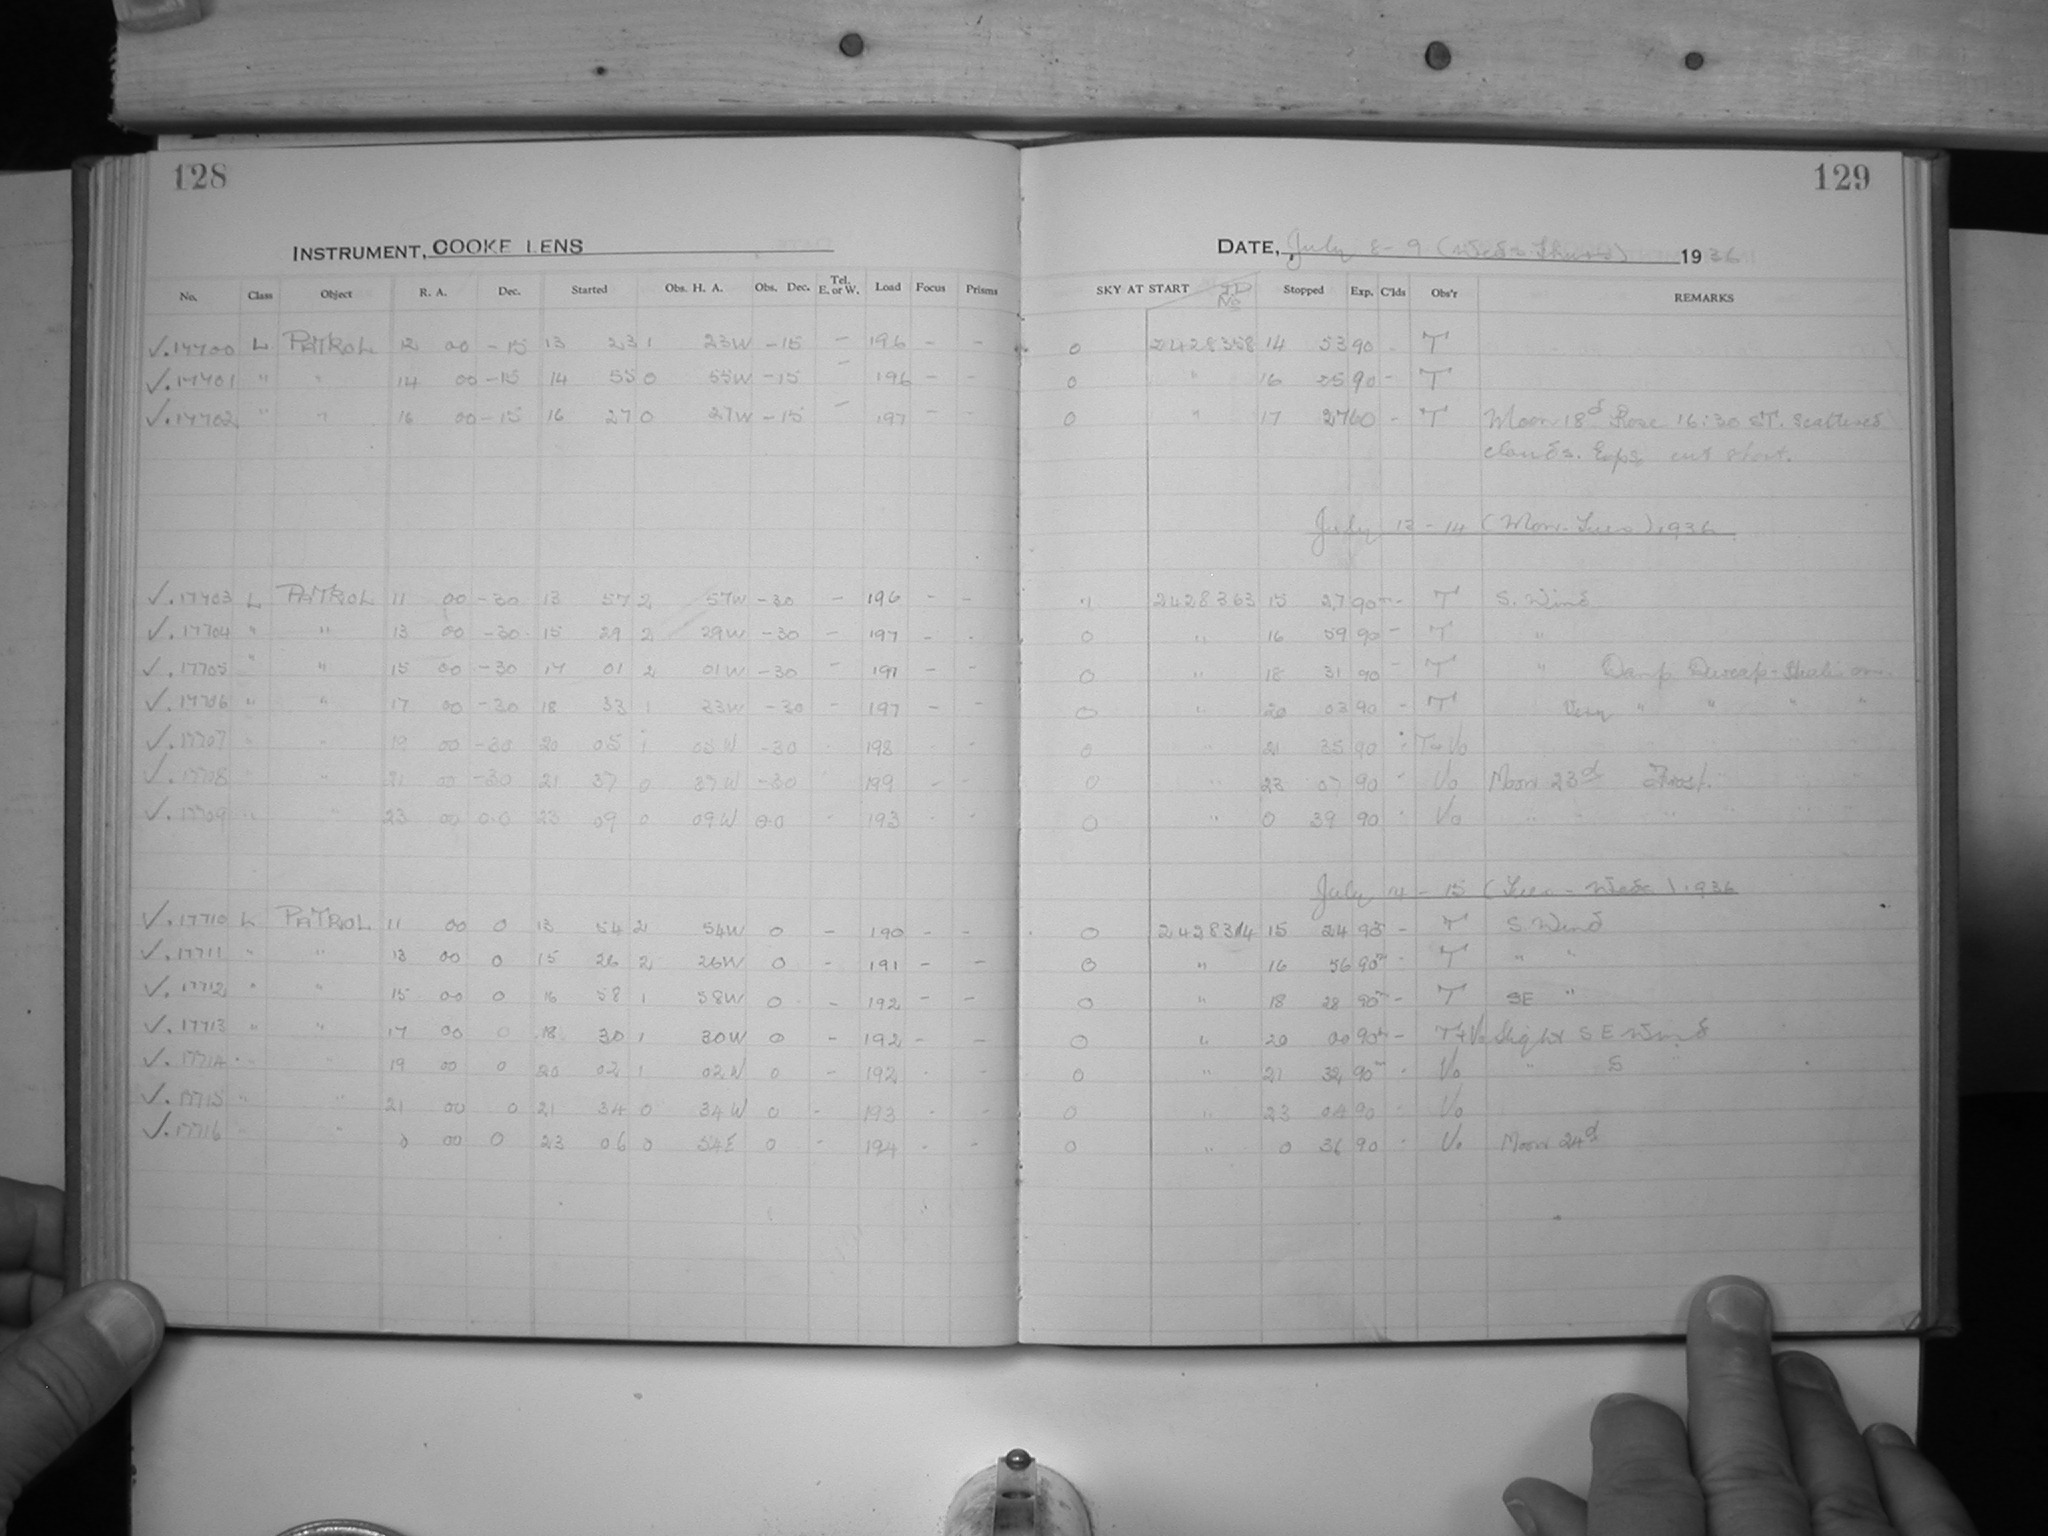 128
INSTRUMENT, COOKE LENS
No. Class Object R. A. Dec. Started Obs. H. A. Obs. Dec. Tel. E. or W. Load Focus Prisms
✓.17700 L PATROL 12 00 -15 13 23 1 23W -15 - 196 - -
✓.17701 " " 14 00 -15 14 55 0 55W -15 - 196 - -
✓.17702 " " 16 00 -15 16 27 0 27W -15 - 197 - -
✓.17703 L PATROL 11 00 -30 13 57 2 57W -30 - 196 - -
✓.17704 " " 13 00 -30 15 29 2 29W -30 - 197 - -
✓.17705 " " 15 00 -30 17 01 2 01W -30 - 197 - -
✓.17706 " " 17 00 -30 18 33 1 33W -30 - 197 - -
✓.17707 " " 19 00 -30 20 05 1 05W -30 - 198 - -
✓.17708 " " 21 00 -30 21 37 0 37W -30 - 199 - -
✓.17709 " " 23 00 00 23 09 0 09W 00 - 193 - -
✓.17710 L PATROL 11 00 0 13 54 2 54W 0 - 190 - -
✓.17711 " " 13 00 0 15 26 2 26W 0 - 191 - -
✓.17712 " " 15 00 0 16 58 1 58W 0 - 192 - -
✓.17713 " " 17 00 0 18 30 1 30W 0 - 192 - -
✓.17714 " " 19 00 0 20 02 1 02W 0 - 192 - -
✓.17715 " " 21 00 0 21 34 0 34W 0 - 193 - -
✓.17716 " " 0 00 0 23 06 0 54E 0 - 194 - -
129
DATE, July 8-9 (Weds-Thurs) 1936
SKY AT START JD No Stopped Exp. C'lds Obs'r REMARKS
0 2428358 14 53 90 - T
0 " 16 25 90 - T
0 " 17 27 60 - T Moon 18d Rose 16:30 ST. Scattered
clouds. Exps cut short.
July 13-14 (Mon-Tues) 1936
2428363 15 27 90m - T S. Wind
0 " 16 59 90 - T "
0 " 18 31 90 - T " Damp Dewcap
0 " 20 03 90 - T Very " " " "
0 " 21 35 90 - T+Vo
0 " 23 07 90 - Vo Moon 23d Frost.
0 " 0 39 90 - Vo " " " "
July 14-15 (Tues-Weds) 1936
0 24283 15 24 90 - T S. Wind
0 " 16 56 90m - T " "
0 " 18 28 90m - T SE "
0 " 20 00 90m - T+Vo Slight S E Wind
0 " 21 32 90m - Vo " S
0 " 23 04 90 - Vo
0 " 0 36 90 - Vo Moon 24d